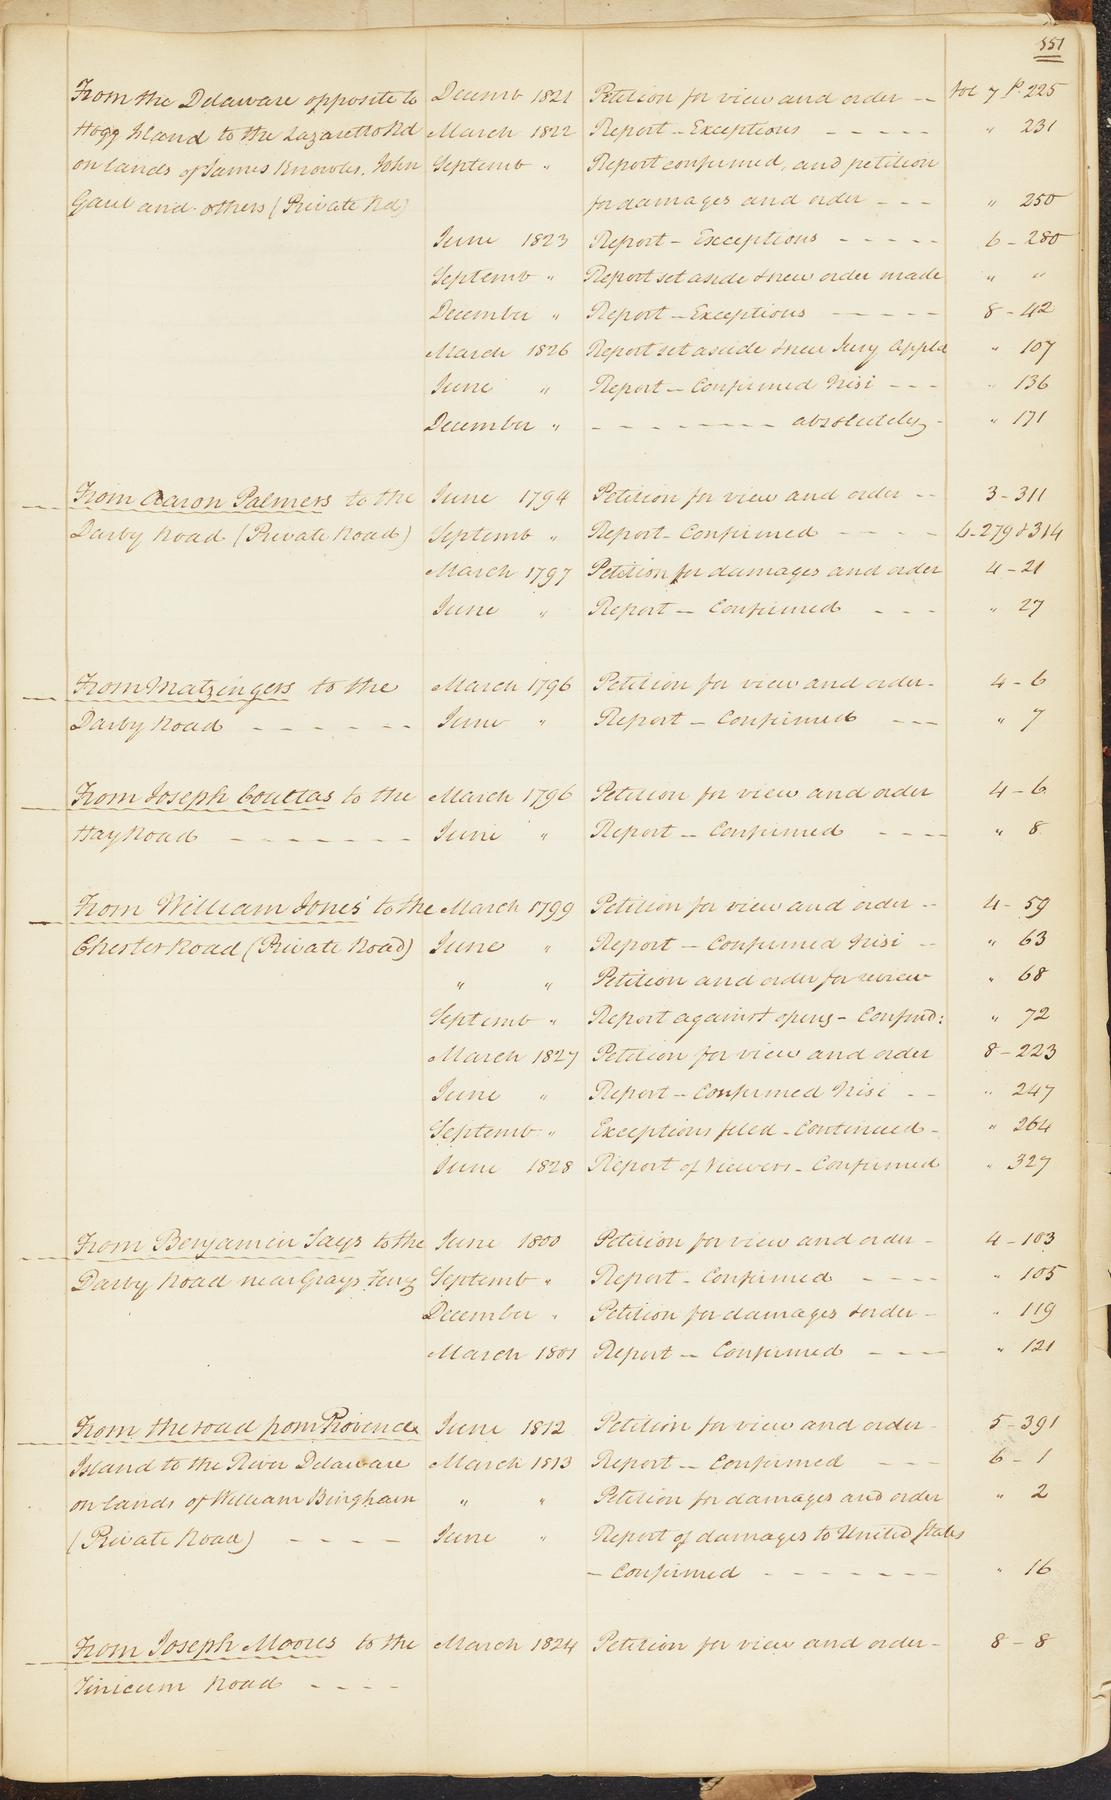 551
From the Delaware opposite to Decemb 1821 Petition for view and order -- Vol 7 P. 225
Hogg Island to the Lazaretto Rd March 1822 Report - Exceptions - - - - - " 231
on lands of James Knowles, John Septemb " Report confirmed, and petition
Gaul and others (Private Rd) for damages and order - - - " 250
June 1823 Report - Exceptions - - - - - 6 - 280
Septemb " Report set aside & new order made " "
December " Report - Exceptions - - - - - 8 - 42
March 1826 Report set aside & new Jury Appt'd " 107
June " Report - Confirmed Nisi - - - " 136
December " - - - - - - - - absolutely - " 171
From Aaron Palmers to the June 1794 Petition for view and order -- 3 - 311
Darby Road (Private Road) Septemb " Report - Confirmed - - - - 4-279 & 314
March 1797 Petition for damages and order 4 - 21
June " Report - Confirmed - - - " 27
From Matzingers to the March 1796 Petition for view and order - 4 - 6
Darby Road - - - - - - June " Report - Confirmed - - - " 7
From Joseph Coultas to the March 1796 Petition for view and order 4 - 6
Hay Road - - - - - - - June " Report - Confirmed - - - - " 8
From William Jones' to the March 1799 Petition for view and order -- 4 - 59
Chester Road (Private Road) June " Report - Confirmed Nisi -- " 63
" " Petition and order for review " 68
Septemb " Report against opens - Confmd: " 72
March 1827 Petition for view and order 8 - 223
June " Report - Confirmed Nisi - - " 247
Septemb " Exceptions filed - Continued - " 264
June 1828 Report of Viewers - Confirmed " 327
From Benjamin Says to the June 1800 Petition for view and order - 4 - 103
Darby Road near Grays Ferry Septemb " Report - Confirmed - - - - " 105
December " Petition for damages & order - " 119
March 1801 Report - Confirmed - - - - " 121
From the road from Providence June 1812 Petition for view and order - 5 - 391
Island to the River Delaware March 1813 Report - Confirmed - - - 6 - 1
on lands of William Bingham " " Petition for damages and order " 2
(Private Road) - - - - June " Report of damages to United States
- Confirmed - - - - - - - " 16
From Joseph Moores to the March 1824 Petition for view and order - 8 - 8
Tinicum Road - - - -